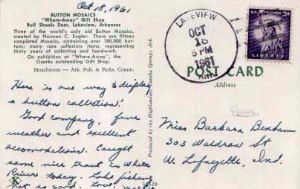 Oct 18, 1961
BUTTON MOSAICS
"Where-Away" Gift Shop
Bull Shoals Dam, Lakeview, Arkansas
Three of the world's only old Button Mosaics,
created by Norman C. Ziegler. There are fifteen
completed Mosaics, containing over 100,000 but-
tons; many rare collectors items, representing
thirty years of collecting and handwork.
On exhibition at "Where-Away", the
Ozarks outstanding Gift Shop.
Ektachrome — Ark. Pub. & Parks Comm.
Here is one way to display
a button collection!
Good company, fine
weather and excellent
accomodations. Caught
some nice trout in White
River today. Lake fishing
not so good. Love,
LAKEVIEW
OCT
18
5 PM
1961
ARK.
POST CARD
Address
Miss Barbara Benham
303 Waldron St
W. Lafayette, Ind.
K